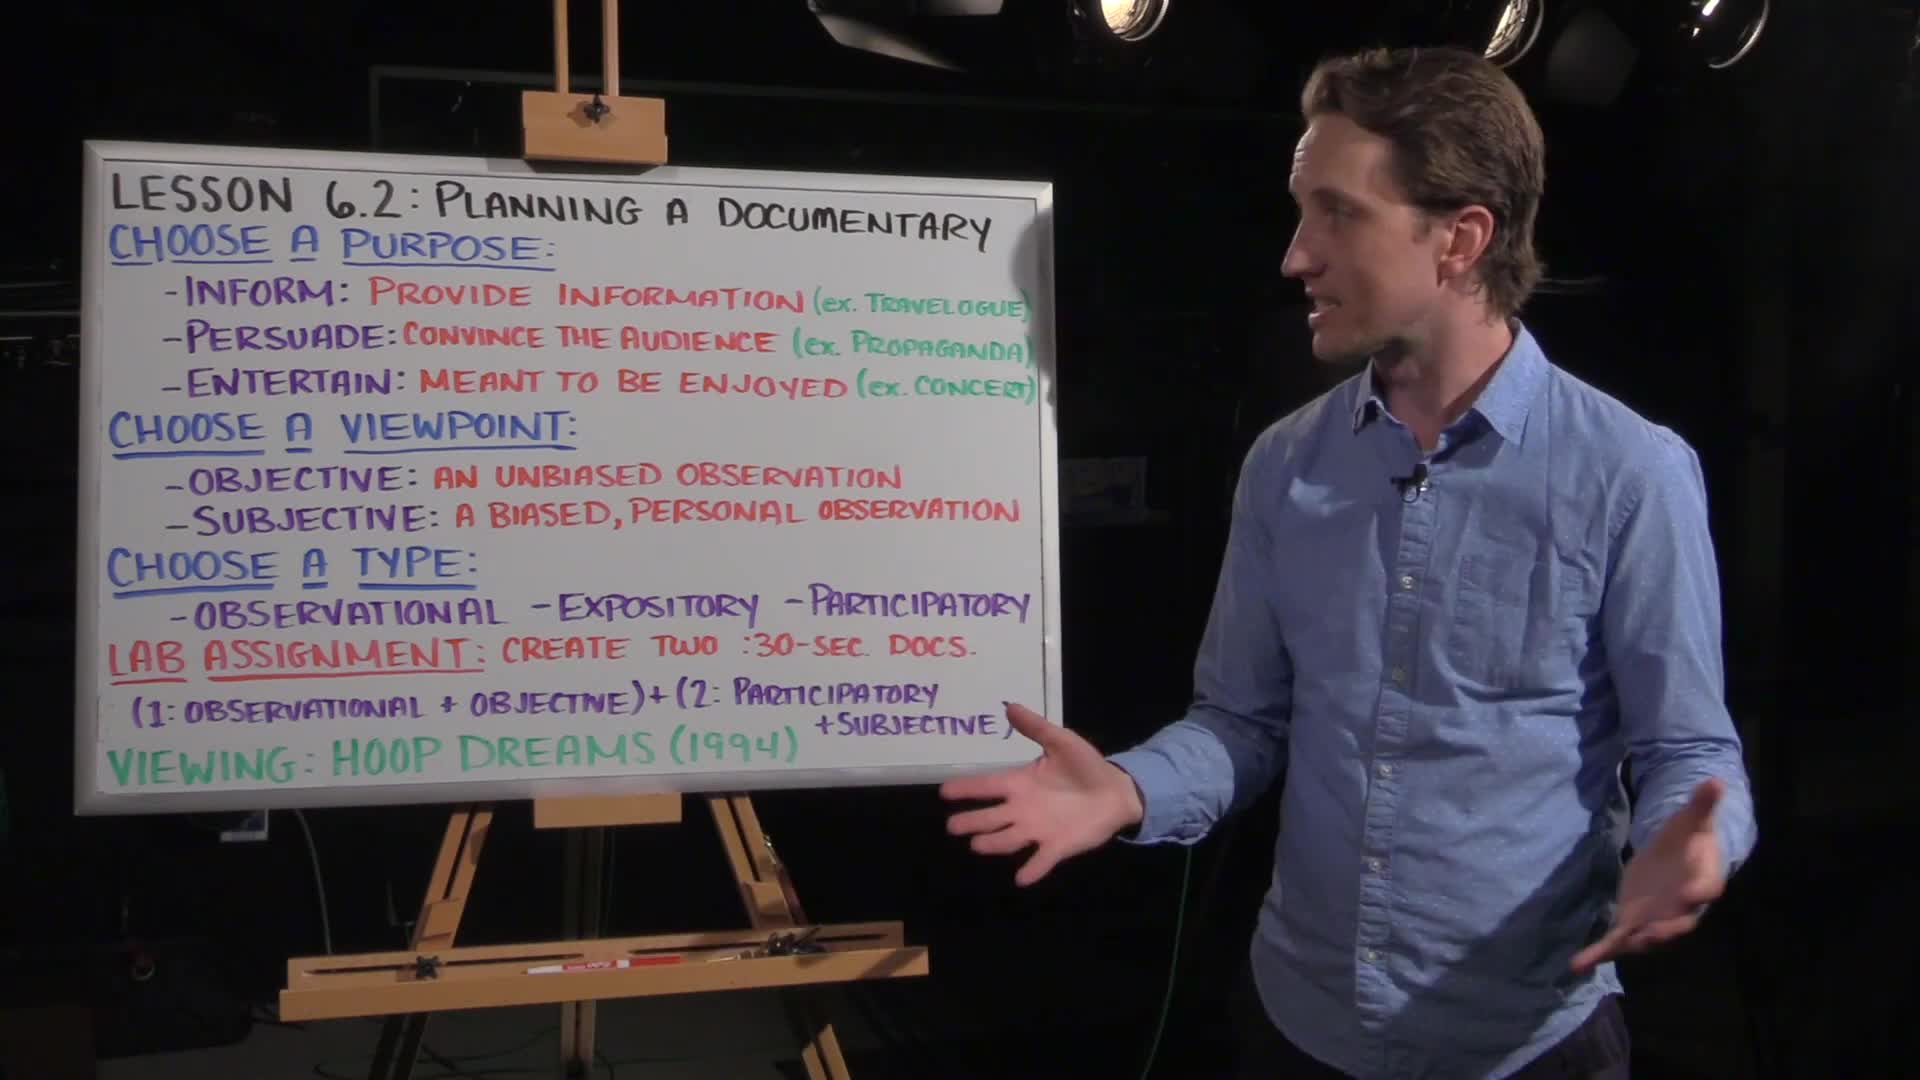 LESSON 6.2: PLANNING A DOCUMENTARY
CHOOSE A PURPOSE:
-INFORM: PROVIDE INFORMATION (ex. TRAVELOGUE)
-PERSUADE: CONVINCE THE AUDIENCE (ex. PROPAGANDA)
-ENTERTAIN: MEANT TO BE ENJOYED (ex. CONCERT)
CHOOSE A VIEWPOINT:
-OBJECTIVE: AN UNBIASED OBSERVATION
-SUBJECTIVE: A BIASED, PERSONAL OBSERVATION
CHOOSE A TYPE:
-OBSERVATIONAL -EXPOSITORY -PARTICIPATORY
LAB ASSIGNMENT: CREATE TWO :30-SEC. DOCS.
(1: OBSERVATIONAL + OBJECTIVE) + (2: PARTICIPATORY
+ SUBJECTIVE)
VIEWING: HOOP DREAMS (1994)